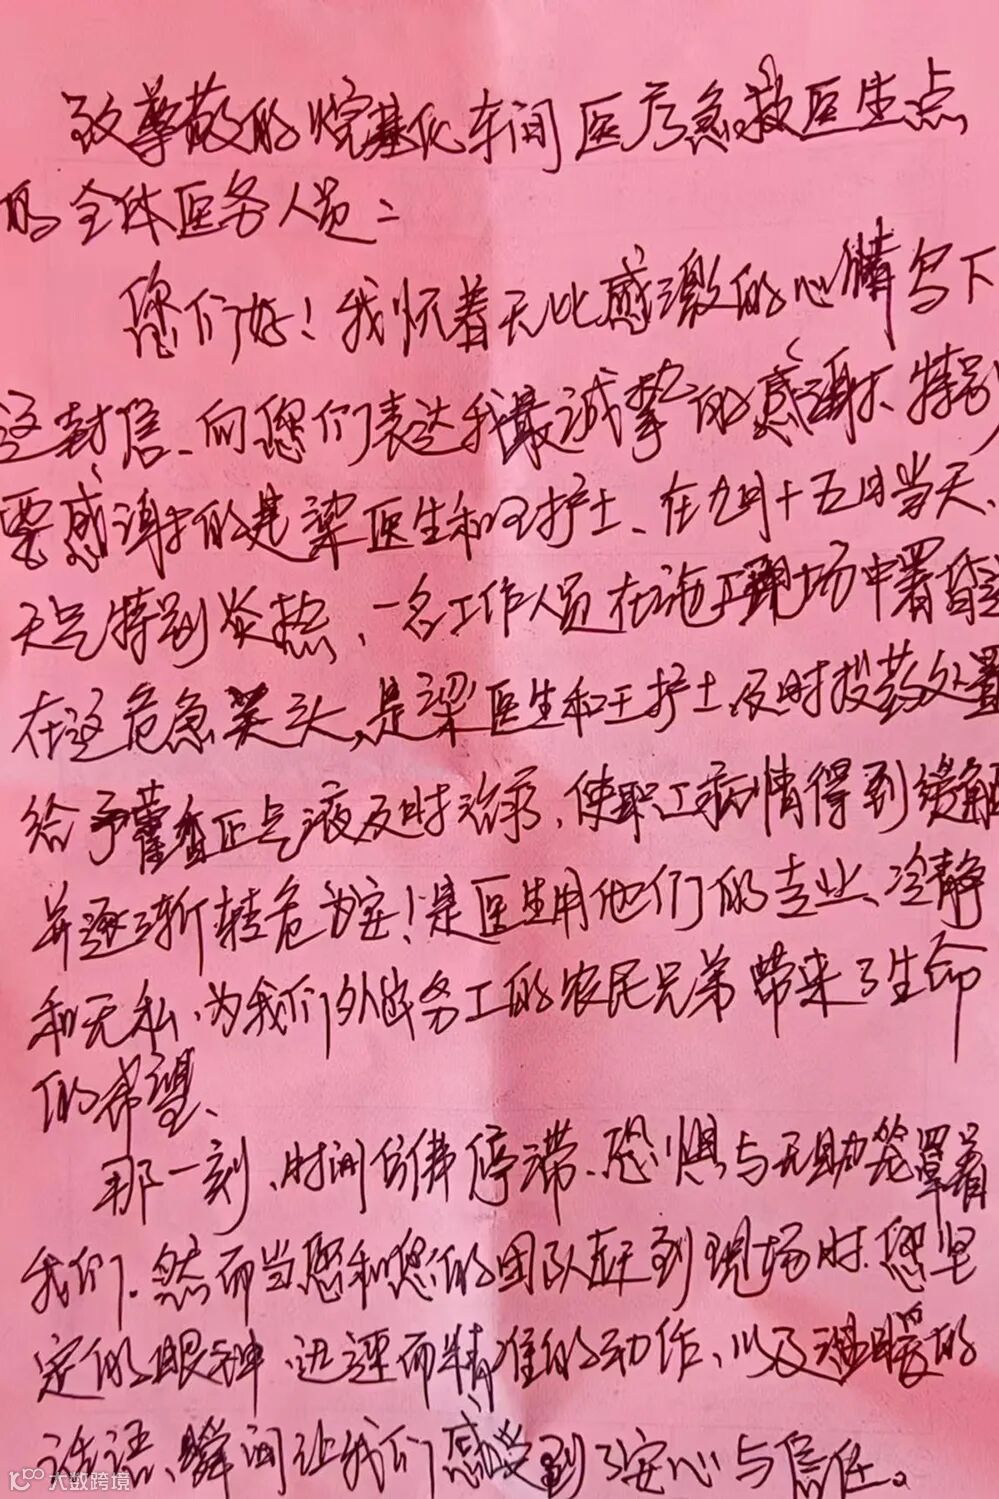 致尊敬的烷基化车间医疗急救医生点
的全体医务人员：
您们好！我怀着无比感激的心情写下
这封信、向您们表达我最诚挚的感谢、特别
要感谢的是梁医生和王护士、在九月十五日当天、
天气特别炎热、一名工作人员在施工现场中署昏
在这危急关头，是梁医生和王护士及时投药处置
给予藿香正气液及时治疗，使职工病情得到缓解
并逐渐转危为安！是医生用他们的专业、冷静
和无私、为我们外出务工的农民兄弟带来了生命
的希望、
那一刻、时间仿佛停滞、恐惧与无助笼罩着
我们．然而当您和您的团队赶到现场时．您坚
定的眼神、迅速而精准的动作、以及温暖的
话语、瞬间让我们感受到了安心与信任。
大数跨境